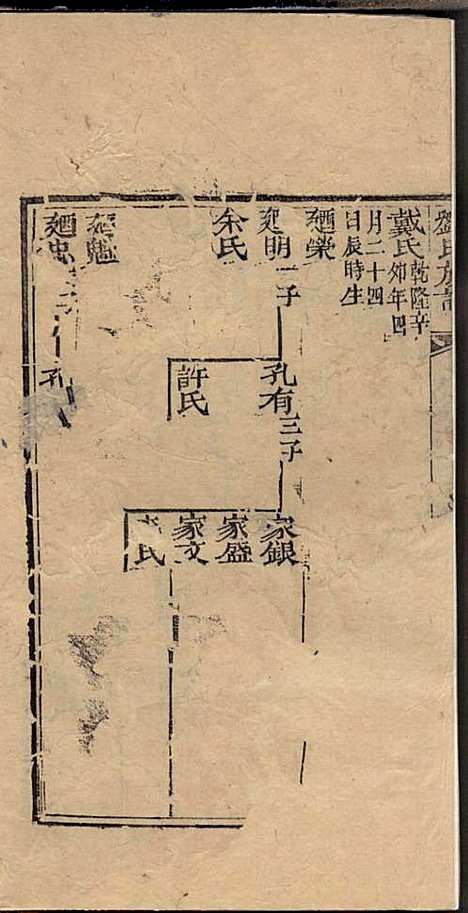 劉氏族譜
戴氏乾隆辛
卯年四
月二十四
日辰時生
廼榮
廼明一子
余氏
廼魁
廼忠
孔有三子
許氏
孔
家銀
家盛
家文
氏